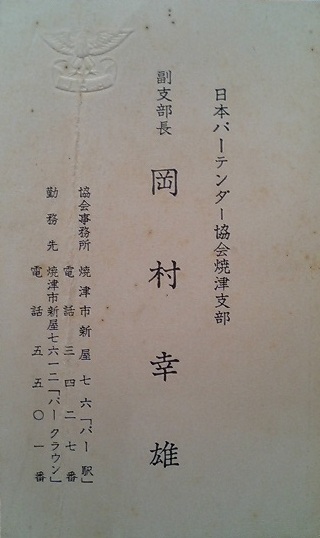 日本バーテンダー協会焼津支部
副支部長
岡村幸雄
協会事務所 焼津市新屋七六「バー駅」
電話三四二七番
勤務先 焼津市新屋七六ー二「バークラウン」
電話五五〇一番